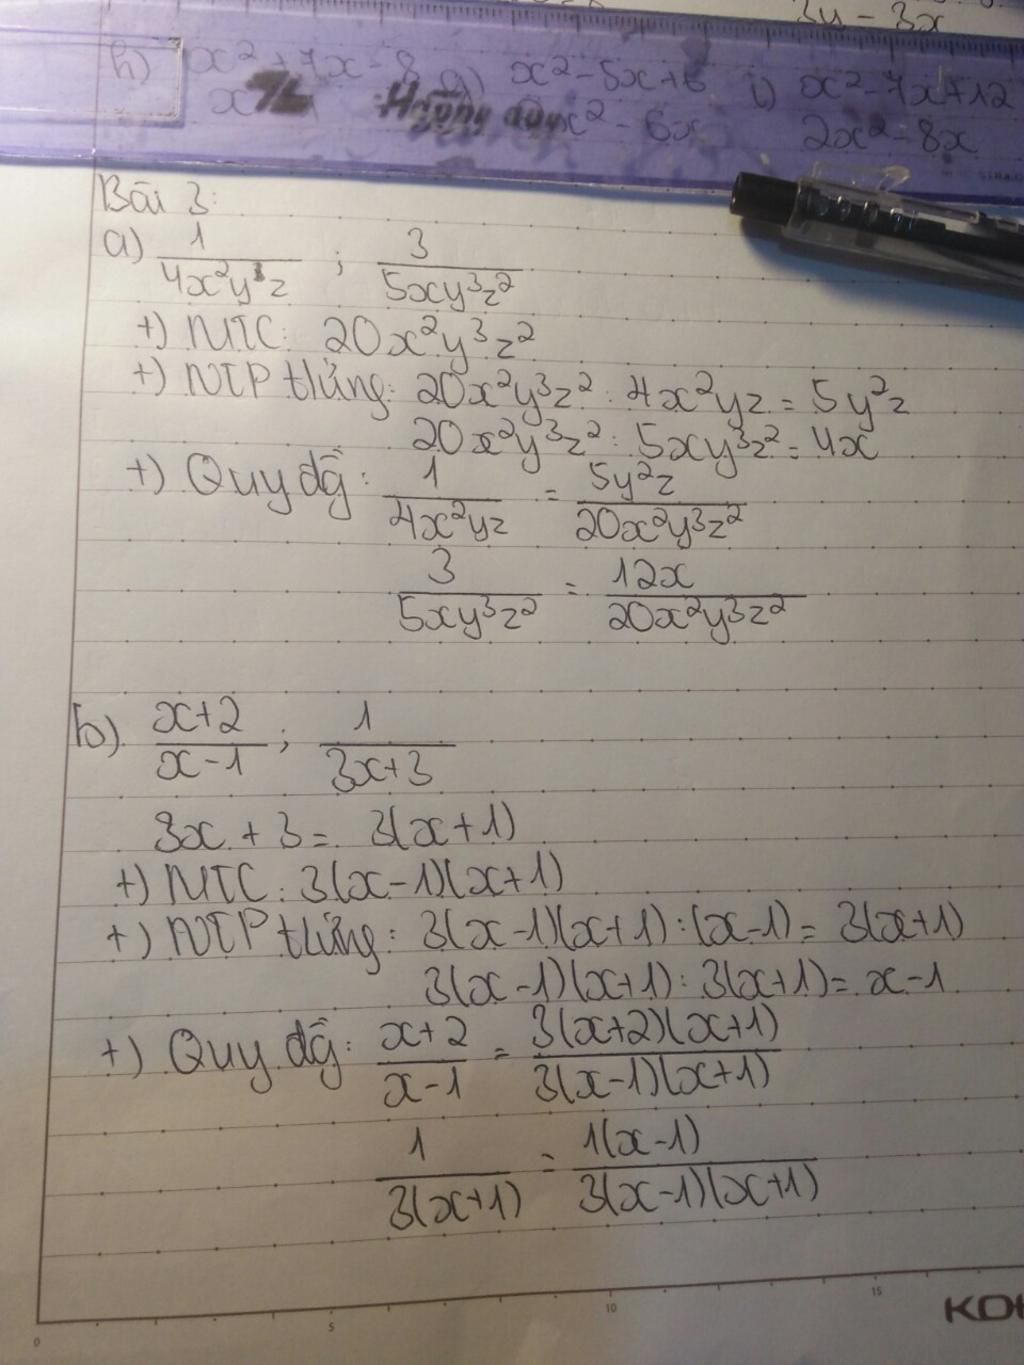 3y - 3x
h) x² + 7x - 8 g) x² - 5x + 6 i) x² - 7x + 12
x² - 6x 2x² - 8x
Happy day
Bài 3:
a) 1/4x²yz ; 3/5xy³z²
+) MTC: 20x²y³z²
+) NTP tứng: 20x²y³z² : 4x²yz = 5y²z
20x²y³z² : 5xy³z² = 4x
+) Quy đg̃: 1/4x²yz = 5y²z/20x²y³z²
3/5xy³z² = 12x/20x²y³z²
b) x+2/x-1 ; 1/3x+3
3x + 3 = 3(x+1)
+) MTC: 3(x-1)(x+1)
+) NTP tứng: 3(x-1)(x+1) : (x-1) = 3(x+1)
3(x-1)(x+1) : 3(x+1) = x-1
+) Quy đg̃: x+2/x-1 = 3(x+2)(x+1)/3(x-1)(x+1)
1/3(x+1) = 1(x-1)/3(x-1)(x+1)
0 5 10 15